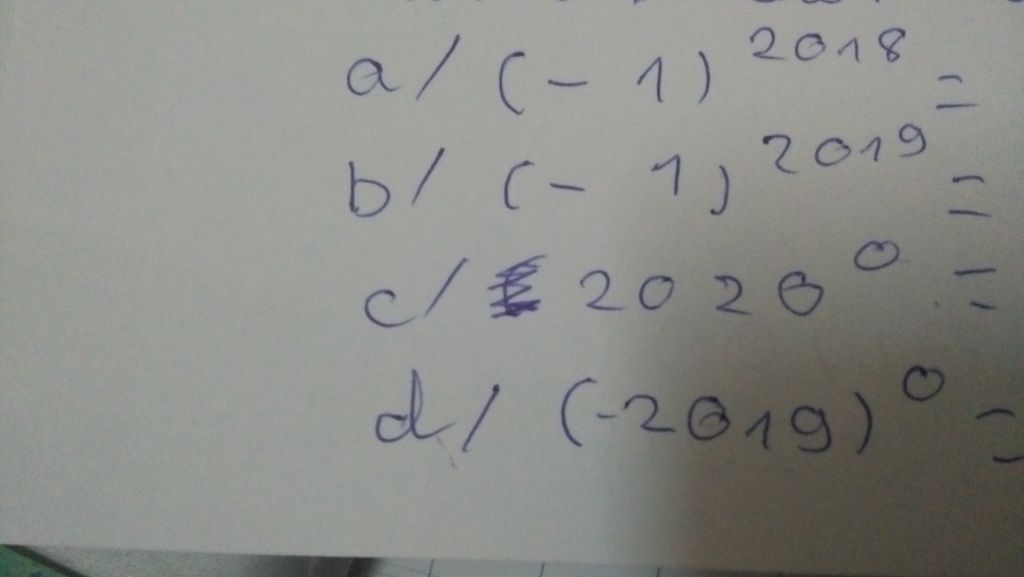 a/ (- 1)²⁰¹⁸ =
b/ (- 1)²⁰¹⁹ =
c/ 2020⁰ =
d/ (-2019)⁰ =